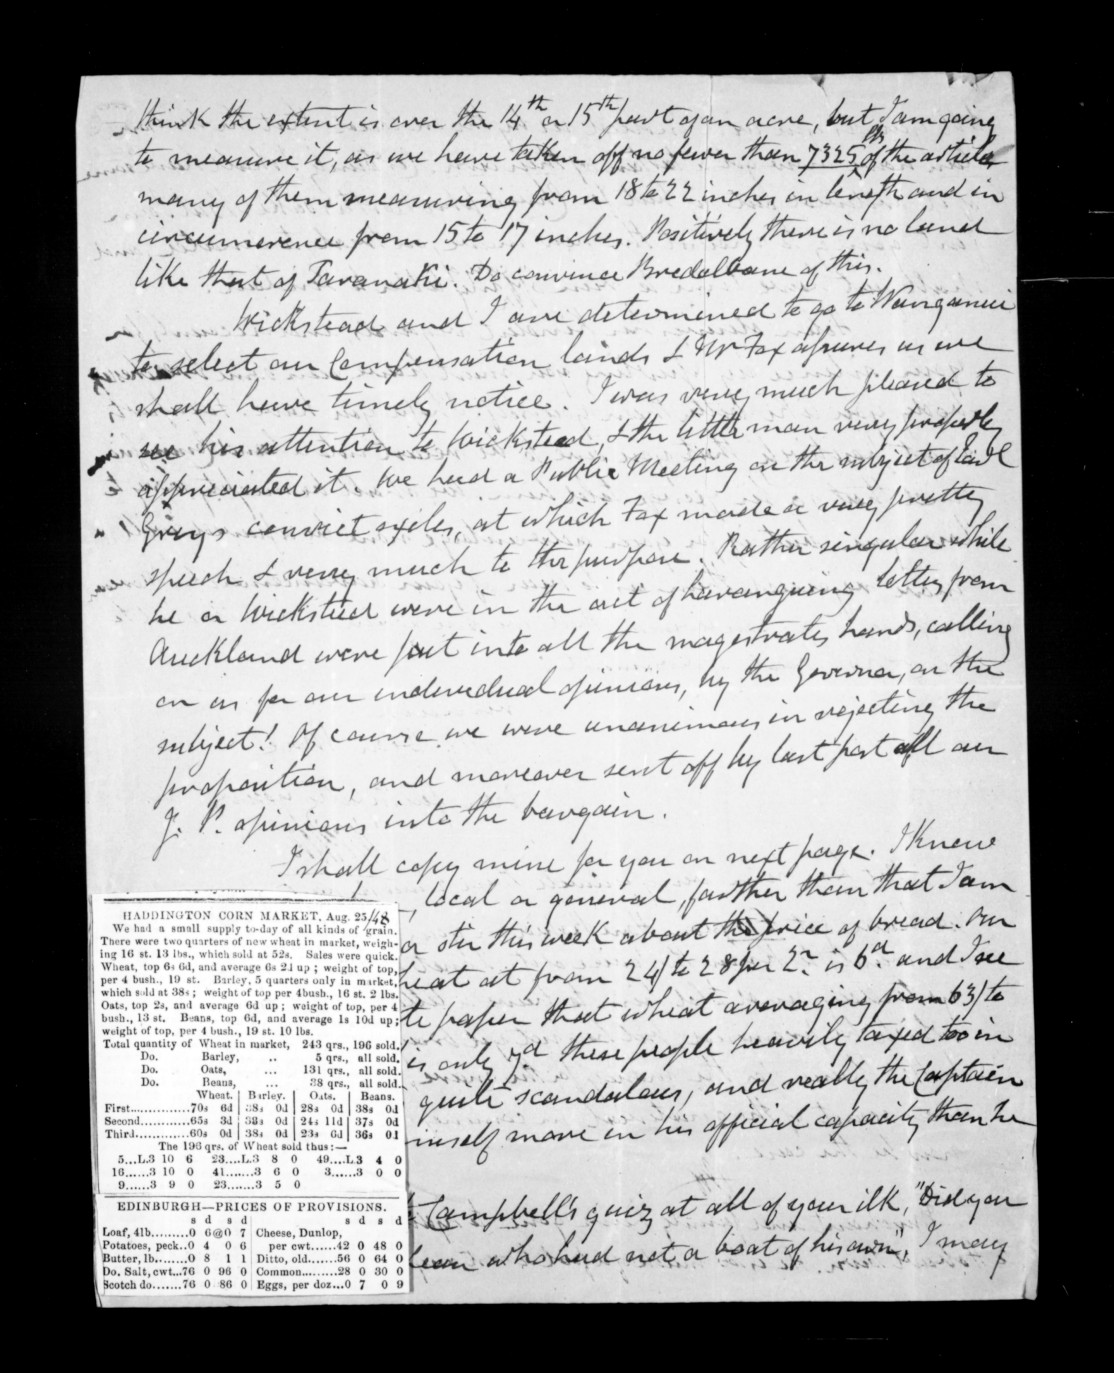 think the extent is over the 14th or 15th part of an acre, but I am going
to measure it, as we have taken off no fewer than 7325 lbs of the article
many of them measuring from 18 to 22 inches in length and in
circumerence from 15 to 17 inches. Positively there is no land
like that of Taranaki. Do convince Bredalbane of this.
Wickstead and I are determined to go to Wanganui
to select our Compensation lands & Mr Fox assures us we
shall have timely notice. I was very much pleased to
see his attention to Wicksteed, & the little man very properly
appreciated it. We had a Public Meeting on the subject of Earl
Grey's convict exiles, at which Fox made a very pretty
speech & very much to the purpose. Rather singular while
he or Wicksteed were in the act of haranguing letters from
Auckland were put into all the magistrates hands, calling
on us for our individual opinions, by the Governor, on the
subject! Of course we were unanimous in rejecting the
proposition, and moreover sent off by last post all our
J. P. opinions into the bargain.
I shall copy mine for you on next page. I Know
, local or general, farther than that I am
a stir this week about the price of bread. Our
heat at from 24/ to 28 per is 6d and I see
te paper that wheat averaging from 63/ to
is only 7d these people heavily taxed too in
quite scandalous, and really the Captain
imself more in his official capacity than he
Campbell's quiz at all of your ilk, "Did you
lean who had not a boat of his own", I may
HADDINGTON CORN MARKET, Aug. 25/48
We had a small supply to-day of all kinds of grain.
There were two quarters of new wheat in market, weigh-
ing 16 st. 13 lbs., which sold at 52s. Sales were quick.
Wheat, top 6s 6d, and average 6s 2d up; weight of top,
per 4 bush., 19 st. Barley, 5 quarters only in market,
which sold at 38s; weight of top per 4bush., 16 st. 2 lbs.
Oats, top 2s, and average 6d up; weight of top, per 4
bush., 13 st. Beans, top 6d, and average 1s 10d up;
weight of top, per 4 bush., 19 st. 10 lbs.
Total quantity of Wheat in market, 243 qrs., 196 sold.
Do. Barley, .. 5 qrs., all sold.
Do. Oats, ... 131 qrs., all sold.
Do. Beans, ... 38 qrs., all sold.
Wheat. Barley. Oats. Beans.
First.............70s 6d 38s 0d 28s 0d 38s 0d
Second............65s 3d 38s 0d 24s 11d 37s 0d
Third.............60s 0d 38s 0d 23s 6d 36s 0d
The 196 qrs. of Wheat sold thus:—
5...L.3 10 6 23....L.3 8 0 49....L.3 4 0
16......3 10 0 41.......3 6 0 3......3 0 0
9......3 9 0 23.......3 5 0
EDINBURGH—PRICES OF PROVISIONS.
s d s d s d s d
Loaf, 4lb.........0 6@0 7 Cheese, Dunlop,
Potatoes, peck..0 4 0 6 per cwt......42 0 48 0
Butter, lb.......0 8 1 1 Ditto, old......56 0 64 0
Do. Salt, cwt...76 0 96 0 Common.........28 0 30 0
Scotch do.......76 0 86 0 Eggs, per doz...0 7 0 9